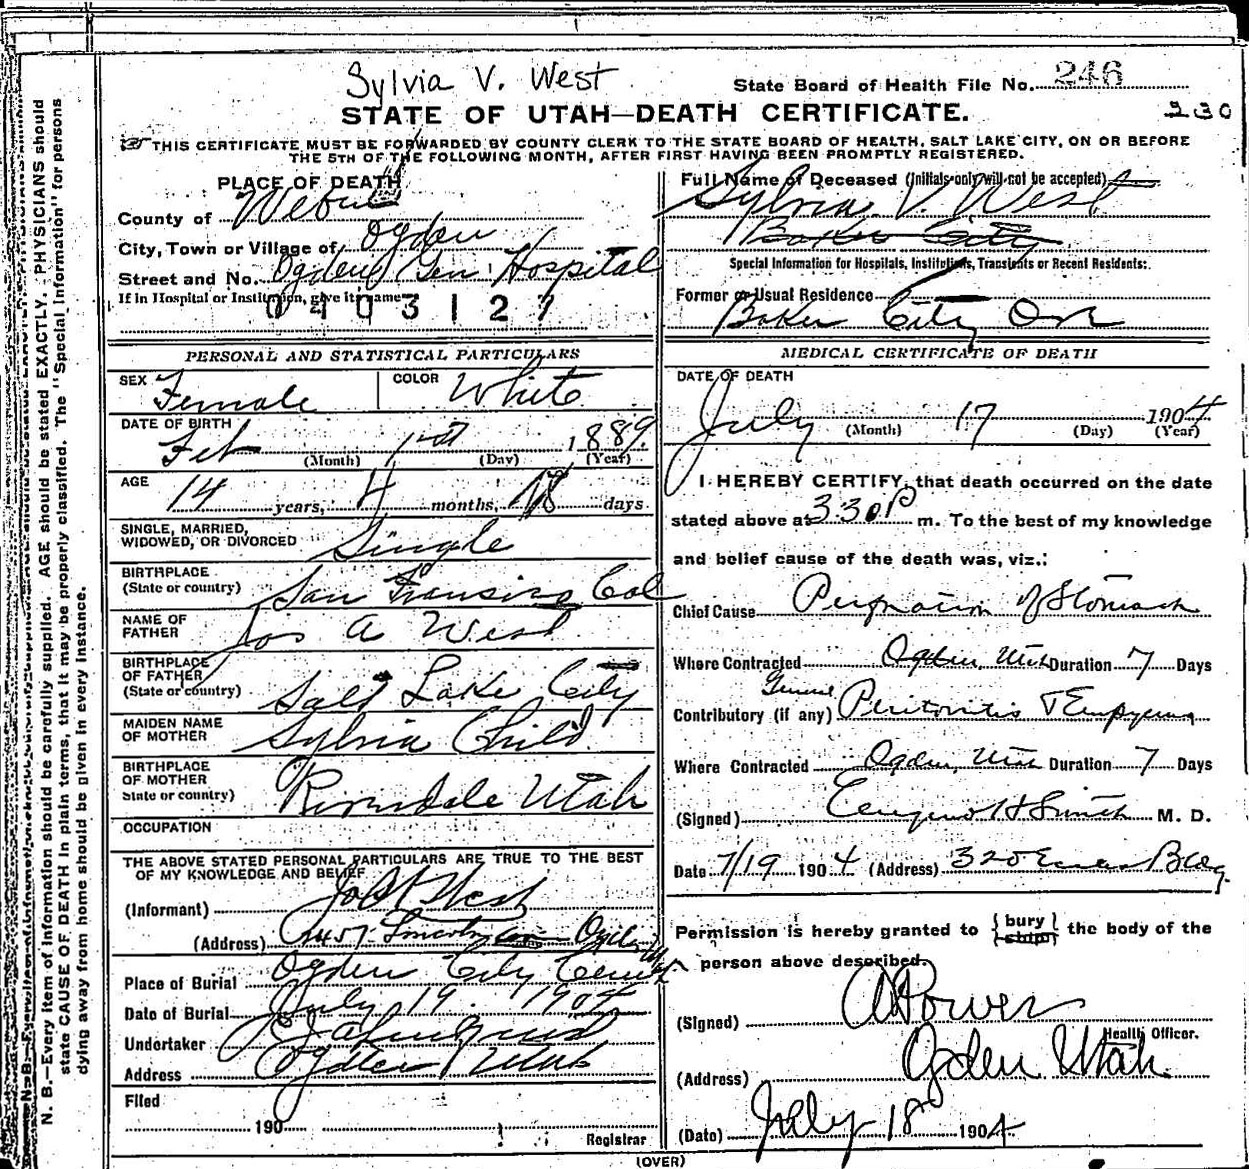 Sylvia V. West
State Board of Health File No. 246
STATE OF UTAH—DEATH CERTIFICATE.
230
THIS CERTIFICATE MUST BE FORWARDED BY COUNTY CLERK TO THE STATE BOARD OF HEALTH, SALT LAKE CITY, ON OR BEFORE
THE 5TH OF THE FOLLOWING MONTH, AFTER FIRST HAVING BEEN PROMPTLY REGISTERED.
PLACE OF DEATH
County of Weber
City, Town or Village of Ogden
Street and No. Ogden Gen. Hospital
If in Hospital or Institution, give its name
0403127
Full Name of Deceased (Initials only will not be accepted)
Sylvia V. West
Baker City
Special Information for Hospitals, Institutions, Transients or Recent Residents:
Former or Usual Residence
Baker City Or
PERSONAL AND STATISTICAL PARTICULARS
SEX Female COLOR White
DATE OF BIRTH
Feb 1st 1889
(Month) (Day) (Year)
AGE 14 years, 4 months, 18 days
SINGLE, MARRIED,
WIDOWED, OR DIVORCED Single
BIRTHPLACE
(State or country) San Fransisco Cal
NAME OF
FATHER Jos A West
BIRTHPLACE
OF FATHER
(State or country) Salt Lake City
MAIDEN NAME
OF MOTHER Sylvia Child
BIRTHPLACE
OF MOTHER
State or country) Riverdale Utah
OCCUPATION
THE ABOVE STATED PERSONAL PARTICULARS ARE TRUE TO THE BEST
OF MY KNOWLEDGE AND BELIEF
(Informant) Jos A West
(Address) Lincoln Ogden
Place of Burial Ogden City Cemetery
Date of Burial July 19 1904
Undertaker
Address Ogden Utah
Filed
190
Registrar
MEDICAL CERTIFICATE OF DEATH
DATE OF DEATH
July 17 1904
(Month) (Day) (Year)
I HEREBY CERTIFY, that death occurred on the date
stated above at 3:30 P m. To the best of my knowledge
and belief cause of the death was, viz.:
Chief Cause Perforation of Stomach
Where Contracted Ogden, Utah Duration 7 Days
General
Contributory (if any) Peritonitis & Empyema
Where Contracted Ogden, Utah Duration 7 Days
(Signed) H Smith M. D.
Date 7/19 1904 (Address) 320 Eccles Bldg.
Permission is hereby granted to {bury / ship} the body of the
person above described.
(Signed) A Power
Health Officer.
(Address) Ogden Utah
(Date) July 18 1904
(OVER)
N. B.—Every item of information should be carefully supplied. AGE should be stated EXACTLY. PHYSICIANS should
state CAUSE OF DEATH in plain terms, that it may be properly classified. The "Special Information" for persons
dying away from home should be given in every instance.